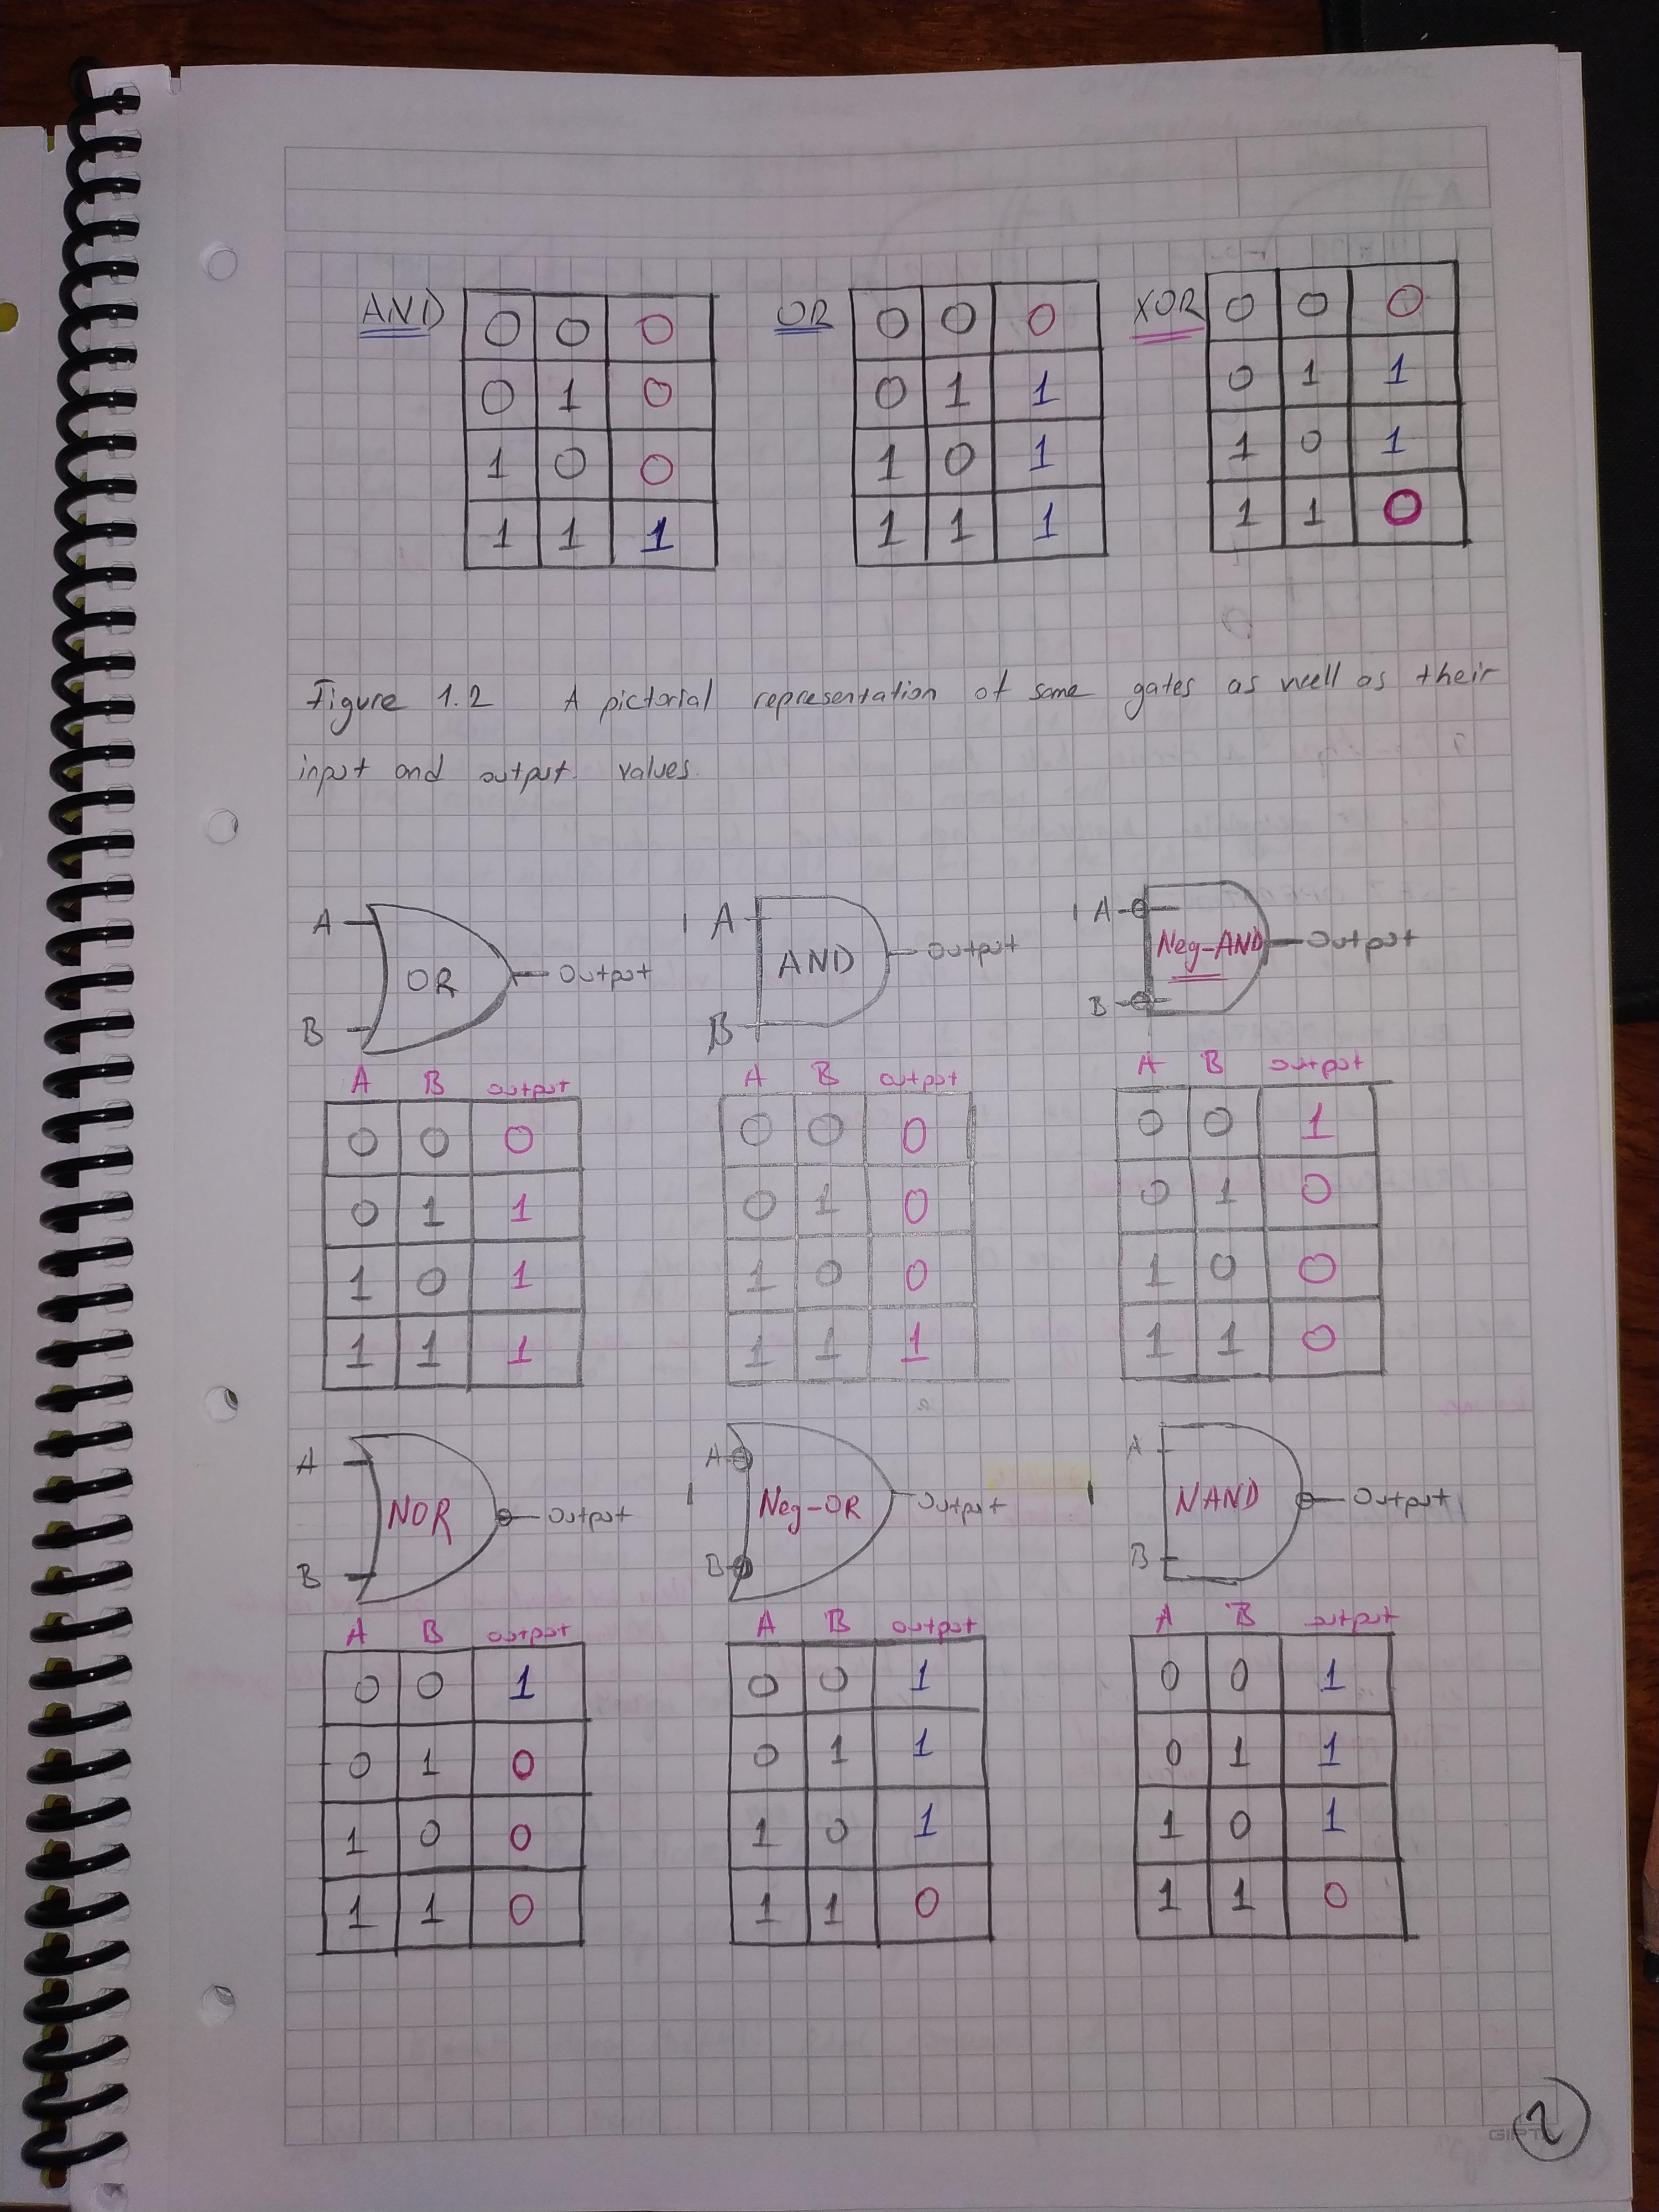 AND
0 0 0
0 1 0
1 0 0
1 1 1
OR
0 0 0
0 1 1
1 0 1
1 1 1
XOR
0 0 0
0 1 1
1 0 1
1 1 0
Figure 1.2 A pictorial representation of some gates as well as their
input and output values.
A
B
OR
Output
A B output
0 0 0
0 1 1
1 0 1
1 1 1
A
B
AND
Output
A B output
0 0 0
0 1 0
1 0 0
1 1 1
A
B
Neg-AND
Output
A B output
0 0 1
0 1 0
1 0 0
1 1 0
A
B
NOR
Output
A B output
0 0 1
0 1 0
1 0 0
1 1 0
A
B
Neg-OR
Output
A B output
0 0 1
0 1 1
1 0 1
1 1 0
A
B
NAND
Output
A B output
0 0 1
0 1 1
1 0 1
1 1 0
2